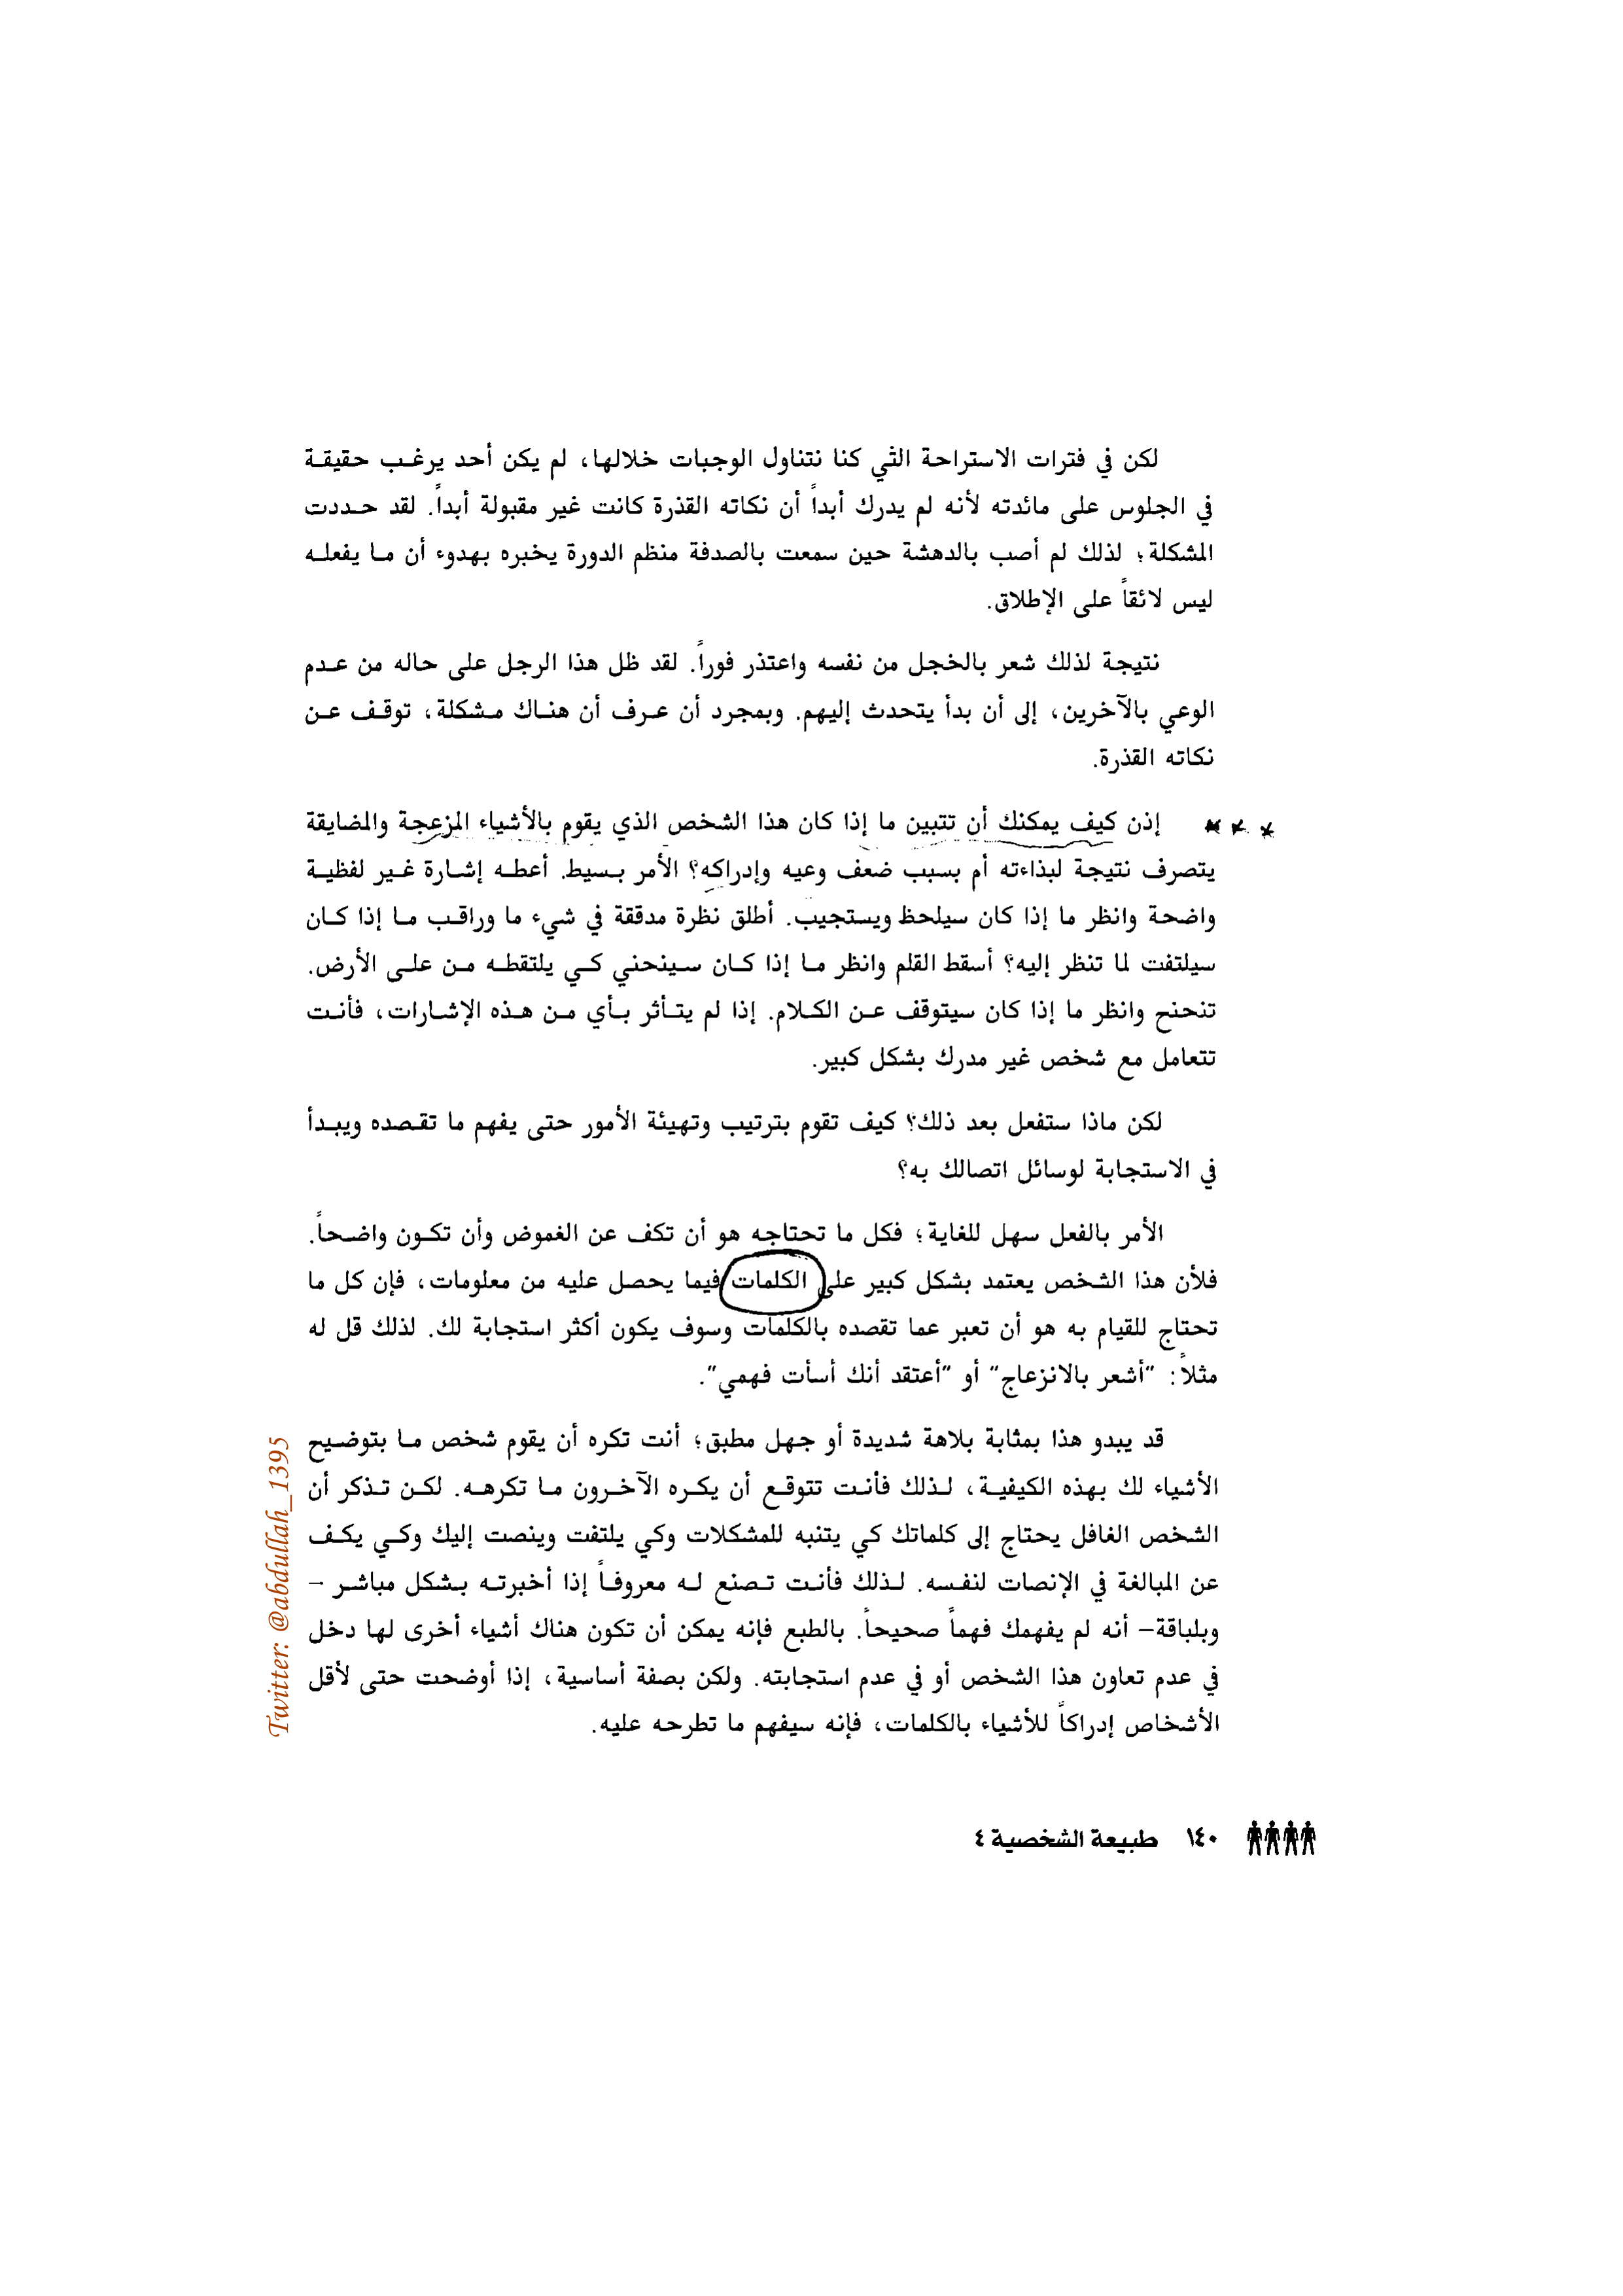 لكن في فترات الاستراحة التي كنا نتناول الوجبات خلالها، لم يكن أحد يرغب حقيقة
في الجلوس على مائدته لأنه لم يدرك أبداً أن نكاته القذرة كانت غير مقبولة أبداً. لقد حددت
المشكلة؛ لذلك لم أصب بالدهشة حين سمعت بالصدفة منظم الدورة يخبره بهدوء أن ما يفعله
ليس لائقاً على الإطلاق.
نتيجة لذلك شعر بالخجل من نفسه واعتذر فوراً. لقد ظل هذا الرجل على حاله من عدم
الوعي بالآخرين، إلى أن بدأ يتحدث إليهم. وبمجرد أن عرف أن هناك مشكلة، توقف عن
نكاته القذرة.
إذن كيف يمكنك أن تتبين ما إذا كان هذا الشخص الذي يقوم بالأشياء المزعجة والمضايقة
يتصرف نتيجة لبذاءته أم بسبب ضعف وعيه وإدراكه؟ الأمر بسيط. أعطه إشارة غير لفظية
واضحة وانظر ما إذا كان سيلحظ ويستجيب. أطلق نظرة مدققة في شيء ما وراقب ما إذا كان
سيلتفت لما تنظر إليه؟ أسقط القلم وانظر ما إذا كان سينحني كي يلتقطه من على الأرض.
تنحنح وانظر ما إذا كان سيتوقف عن الكلام. إذا لم يتأثر بأي من هذه الإشارات، فأنت
تتعامل مع شخص غير مدرك بشكل كبير.
لكن ماذا ستفعل بعد ذلك؟ كيف تقوم بترتيب وتهيئة الأمور حتى يفهم ما تقصده ويبدأ
في الاستجابة لوسائل اتصالك به؟
الأمر بالفعل سهل للغاية؛ فكل ما تحتاجه هو أن تكف عن الغموض وأن تكون واضحاً.
فلأن هذا الشخص يعتمد بشكل كبير على الكلمات فيما يحصل عليه من معلومات، فإن كل ما
تحتاج للقيام به هو أن تعبر عما تقصده بالكلمات وسوف يكون أكثر استجابة لك. لذلك قل له
مثلاً: "أشعر بالانزعاج" أو "أعتقد أنك أسأت فهمي".
قد يبدو هذا بمثابة بلاهة شديدة أو جهل مطبق؛ أنت تكره أن يقوم شخص ما بتوضيح
الأشياء لك بهذه الكيفية، لذلك فأنت تتوقع أن يكره الآخرون ما تكرهه. لكن تذكر أن
الشخص الغافل يحتاج إلى كلماتك كي يتنبه للمشكلات وكي يلتفت وينصت إليك وكي يكف
عن المبالغة في الإنصات لنفسه. لذلك فأنت تصنع له معروفاً إذا أخبرته بشكل مباشر –
وبلباقة– أنه لم يفهمك فهماً صحيحاً. بالطبع فإنه يمكن أن تكون هناك أشياء أخرى لها دخل
في عدم تعاون هذا الشخص أو في عدم استجابته. ولكن بصفة أساسية، إذا أوضحت حتى لأقل
الأشخاص إدراكاً للأشياء بالكلمات، فإنه سيفهم ما تطرحه عليه.
١٤٠ طبيعة الشخصية ٤
Twitter: @abdullah_1395